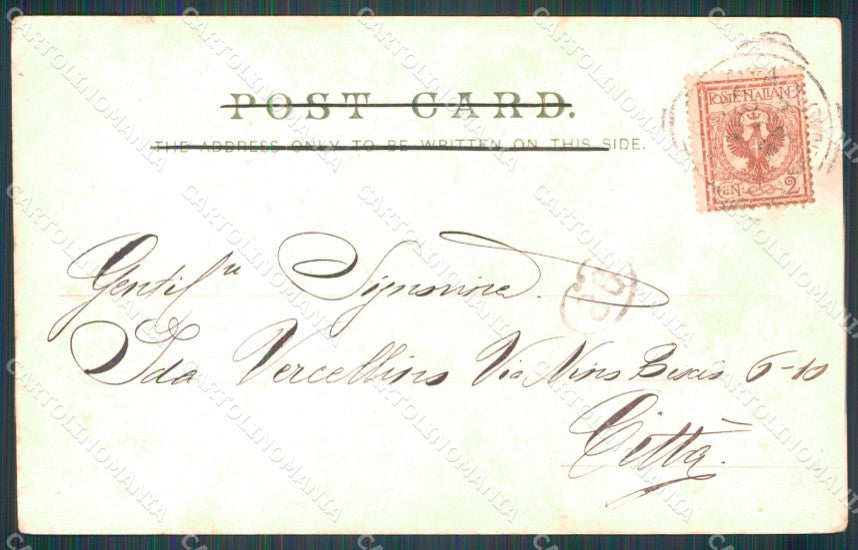 POST CARD.
THE ADDRESS ONLY TO BE WRITTEN ON THIS SIDE.
POSTE ITALIANE
CEN. 2
Gentil.ma Signorina
Ida Vercellino Via Nino Bixio 6-10
Città.
CARTOLINOMANIA